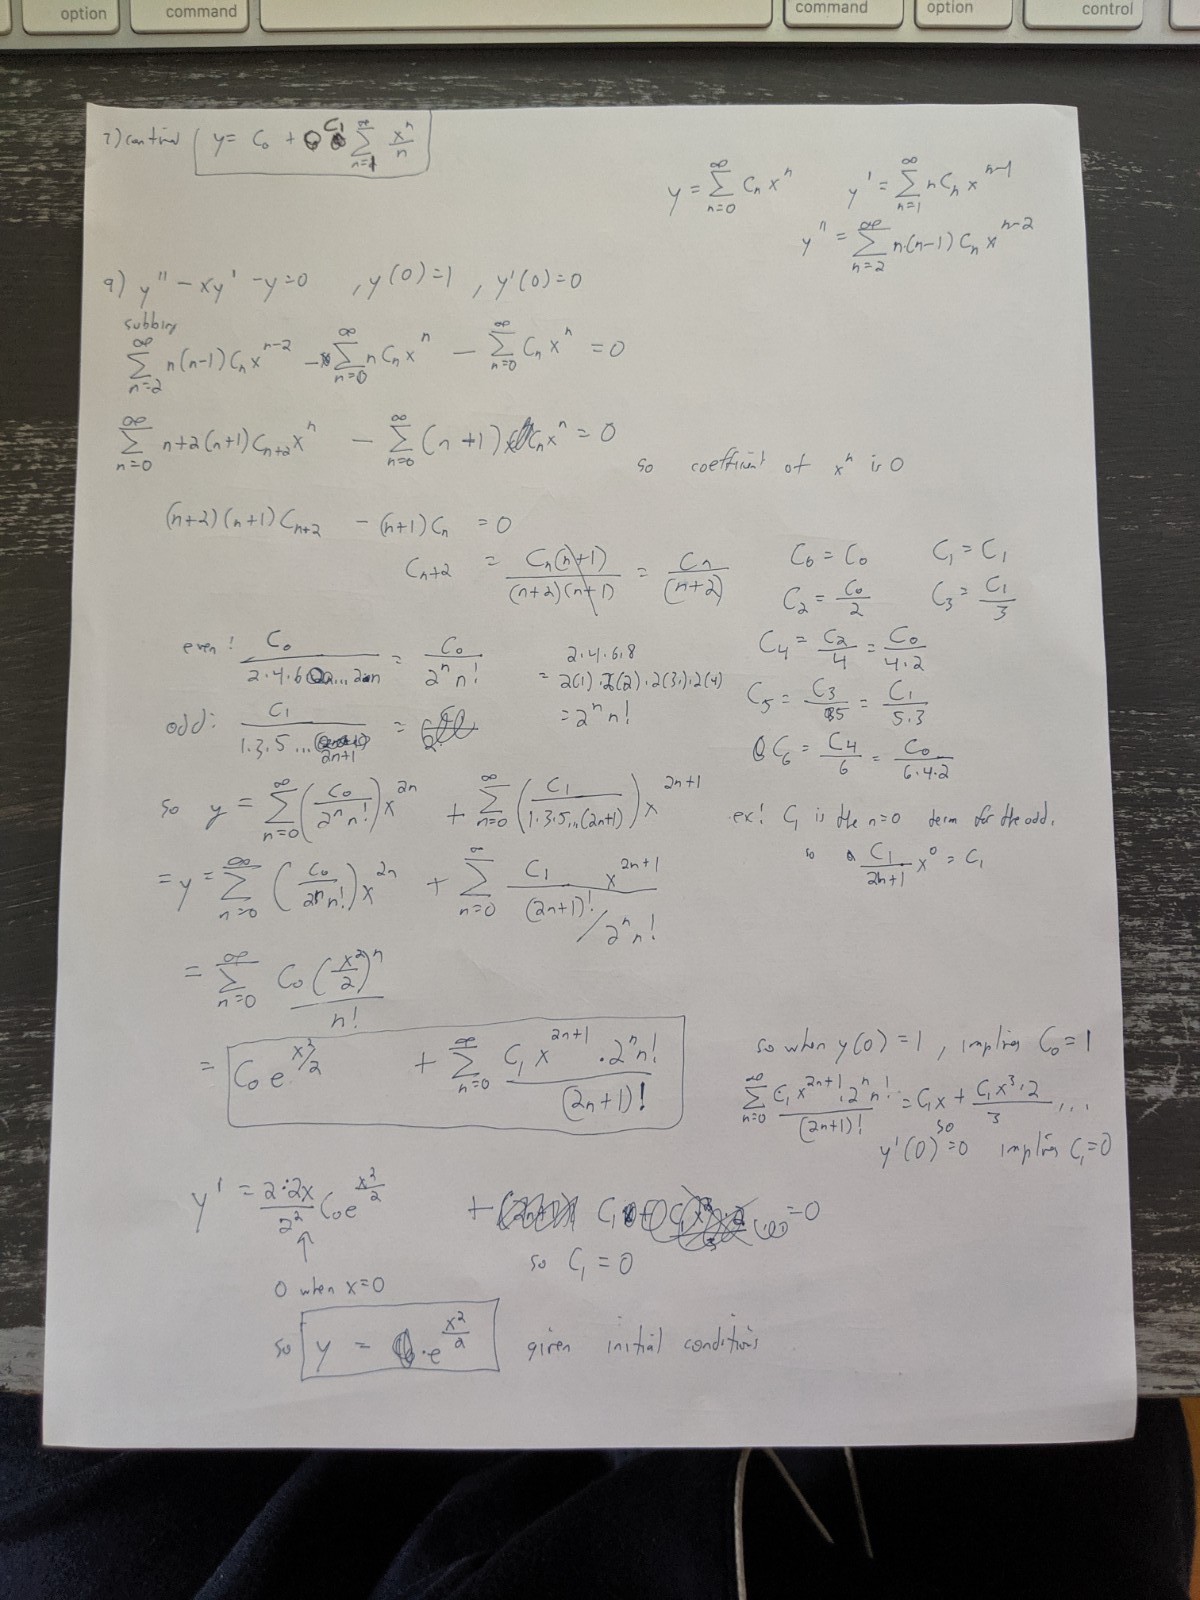 option command command option control
7) continued y = C₀ + C₁ ∑_{n=1}^{∞} xⁿ/n
y = ∑_{n=0}^{∞} Cₙxⁿ y' = ∑_{n=1}^{∞} nCₙx^{n-1}
y'' = ∑_{n=2}^{∞} n·(n-1)Cₙx^{n-2}
9) y'' - xy' - y = 0 , y(0)=1 , y'(0)=0
subbing
∑_{n=2}^{∞} n(n-1)Cₙx^{n-2} - ∑_{n=0}^{∞} nCₙxⁿ - ∑_{n=0}^{∞} Cₙxⁿ = 0
∑_{n=0}^{∞} n+2(n+1)C_{n+2}xⁿ - ∑_{n=0}^{∞} (n+1)Cₙxⁿ = 0
so coefficient of xⁿ is 0
(n+2)(n+1)C_{n+2} - (n+1)Cₙ = 0
C_{n+2} = Cₙ(n+1)/((n+2)(n+1)) = Cₙ/(n+2)
C₀ = C₀ C₁ = C₁
C₂ = C₀/2 C₃ = C₁/3
C₄ = C₂/4 = C₀/(4·2)
C₅ = C₃/5 = C₁/(5·3)
C₆ = C₄/6 = C₀/(6·4·2)
even: C₀/(2·4·6...2n) = C₀/(2ⁿn!)
2·4·6·8
= 2(1)·2(2)·2(3)·2(4)
= 2ⁿn!
odd: C₁/(1·3·5...2n+1) =
so y = ∑_{n=0}^{∞} (C₀/(2ⁿn!))x^{2n} + ∑_{n=0}^{∞} (C₁/(1·3·5...(2n+1)))x^{2n+1}
ex: C₁ is the n=0 term for the odd,
so C₁/(2n+1) x⁰ = C₁
= y = ∑_{n=0}^{∞} (C₀/(2ⁿn!))x^{2n} + ∑_{n=0}^{∞} C₁ x^{2n+1}/((2n+1)!/2ⁿn!)
= ∑_{n=0}^{∞} C₀(x²/2)ⁿ/n!
= C₀e^{x²/2} + ∑_{n=0}^{∞} C₁x^{2n+1}·2ⁿn!/(2n+1)!
so when y(0)=1, implies C₀=1
∑_{n=0}^{∞} C₁x^{2n+1}·2ⁿn!/(2n+1)! = C₁x + C₁x³·2/3 ...
so
y'(0)=0 implies C₁=0
y' = 2·2x/2² C₀e^{x²/2} + C₁ =0
↑
so C₁ = 0
0 when x=0
so y = ·e^{x²/2} given initial conditions